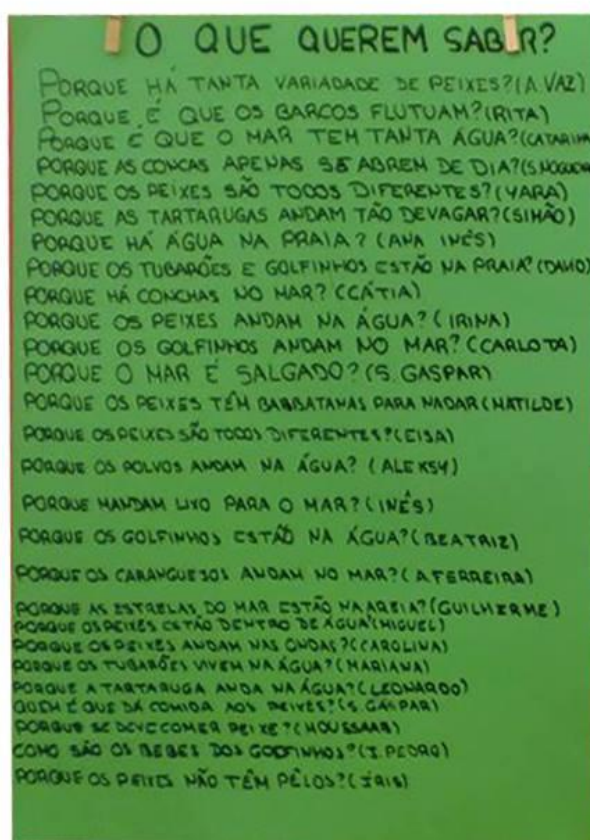 O QUE QUEREM SABER?
PORQUE HÁ TANTA VARIADADE DE PEIXES? (A. VAZ)
PORQUE É QUE OS BARCOS FLUTUAM? (RITA)
PORQUE É QUE O MAR TEM TANTA ÁGUA? (CATARINA
PORQUE AS CONCAS APENAS SE ABREM DE DIA? (S. NOGUEIRA
PORQUE OS PEIXES SÃO TODOS DIFERENTES? (YARA)
PORQUE AS TARTARUGAS ANDAM TÃO DEVAGAR? (SIMÃO)
PORQUE HÁ ÁGUA NA PRAIA? (ANA INÊS)
PORQUE OS TUBARÕES E GOLFINHOS ESTÃO NA PRAIA? (DAVID)
PORQUE HÁ CONCHAS NO MAR? (CÁTIA)
PORQUE OS PEIXES ANDAM NA ÁGUA? (IRINA)
PORQUE OS GOLFINHOS ANDAM NO MAR? (CARLOTA)
PORQUE O MAR É SALGADO? (S. GASPAR)
PORQUE OS PEIXES TÊM BARBATANAS PARA NADAR (MATILDE)
PORQUE OS PEIXES SÃO TODOS DIFERENTES? (ELSA)
PORQUE OS POLVOS ANDAM NA ÁGUA? (ALEKSY)
PORQUE MANDAM LIXO PARA O MAR? (INÊS)
PORQUE OS GOLFINHOS ESTÃO NA ÁGUA? (BEATRIZ)
PORQUE OS CARANGUEJOS ANDAM NO MAR? (A. FERREIRA)
PORQUE AS ESTRELAS DO MAR ESTÃO NA AREIA? (GUILHERME)
PORQUE OS PEIXES ESTÃO DENTRO DE ÁGUA? (MIGUEL)
PORQUE OS PEIXES ANDAM NAS ONDAS? (CAROLINA)
PORQUE OS TUBARÕES VIVEM NA ÁGUA? (MARIANA)
PORQUE A TARTARUGA ANDA NA ÁGUA? (LEONARDO)
QUEM É QUE DÁ COMIDA AOS PEIXES? (S. GASPAR)
PORQUE SE DEVE COMER PEIXE? (MOUSSAAB)
COMO SÃO OS BEBES DOS GOLFINHOS? (J. PEDRO)
PORQUE OS PEIXES NÃO TÊM PÊLOS? (ÍRIS)